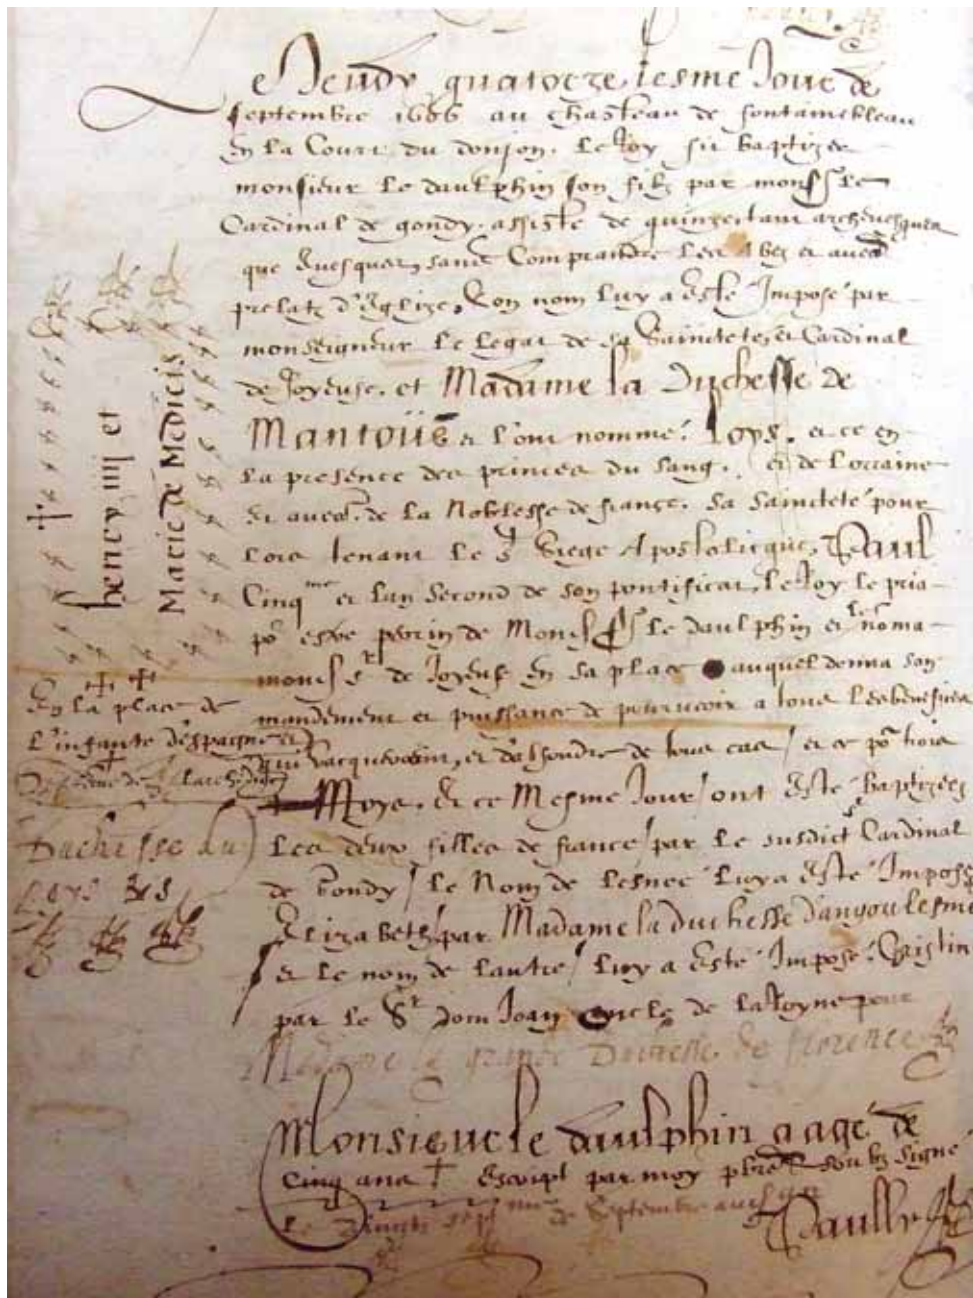 Le Jeudy quatorze iesme Jour de
septembre 1606 au chasteau de fontainebleau
En la Court du donjon. le Roy fit baptizer
monsieur le daulphin son filz par monsr le
Cardinal de gondy. assisté de quinze, tant archevesques
que Evesques, sans Comprandre les Abez et aues
prelatz d'Eglize, Son nom luy a Esté Imposé par
monseigneur le legat de sa Sainctete, et Cardinal
de Joyeuse. et Madame la Duchesse de
Mantoüe & l'ont nommé. Loys. et ce en
la presence des princes du sang. et de Lorraine
Et de la Noblesse de france. Sa Saincteté pour
lors tenant le St Siege Apostolicque, Paul
Cinqme et lan Second de son pontificat, le Roy le pria
po estre perin de Monsr le daulphin et noma
monsr de Joyeuse En sa place auquel donna son
mandement et puissance de pourvoir a tous les benefices
qui vacqueroint, et d'absoudre de tous cas / et ce po trois
Moys. Et ce Mesme Jour / ont Esté baptizees
les deux filles de france / par le susdict Cardinal
de Gondy / le Nom de lesnee luy a Esté Imposé
Elizabeth / par Madame la duchesse dangoulesme
& le nom de lautre / luy a Esté Imposé. Cristine
par le Sr dom Joan oncle de la Royne pour
Madame la grande Duchesse de florence
Monsieur le daulphin aagé de
Cinq ans Escript par moy pbre soubz signé
le vingt sept me de Septembre
henry IIII et
Marie de Medicis
En la place de
L'infante d'espaigne et
Duchesse du
Pays Bas